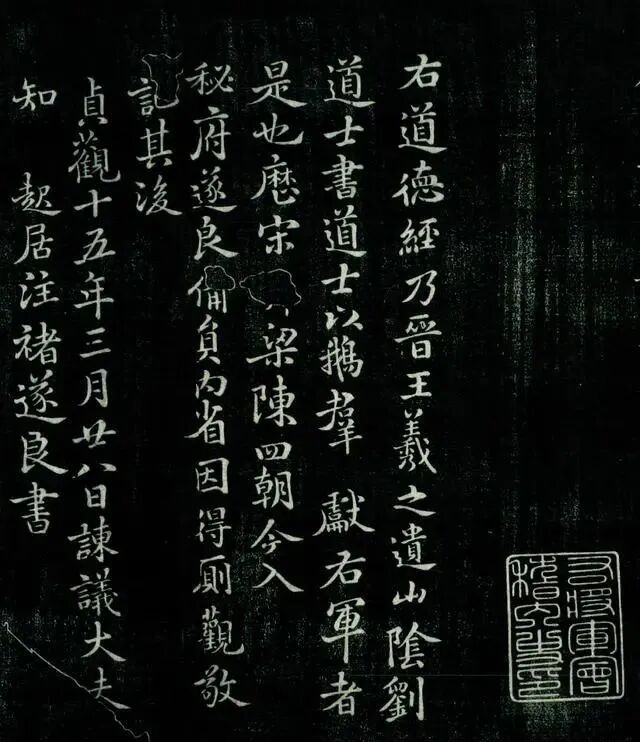 右道德經乃晉王羲之遺山陰劉
道士書道士以鵝羣獻右軍者
是也歷宋梁陳四朝今入
秘府遂良備員內省因得厠觀敬
記其後
貞觀十五年三月廿八日諫議大夫
知起居注褚遂良書
右將軍會
稽內史印